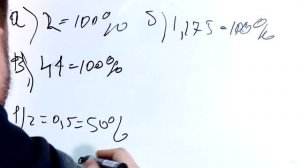 а) 2=100%
б) 1,175=100%
в) 44=100%
1/2=0,5=50%